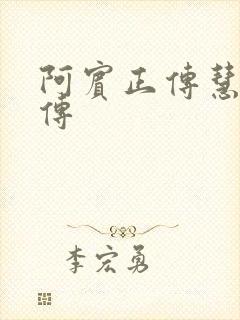 阿賓正傳慧
傳
李宏勇